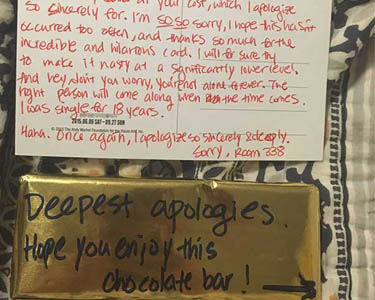 at your cost, which I apologize
so sincerely for. I'm SO SO sorry, I hope this hasn't
occurred too often, and thanks so much for the
incredible and hilarious card. I will for sure try
to make it nasty at a significantly lower level.
And hey, don't you worry, you're not alone forever. The
right person will come along when the time comes.
I was single for 18 years.
2015.06.06 SAT-09.27 SUN
Haha. Once again, I apologize so sincerely & deeply.
Sorry, Room 338
Deepest apologies.
Hope you enjoy this
chocolate bar!